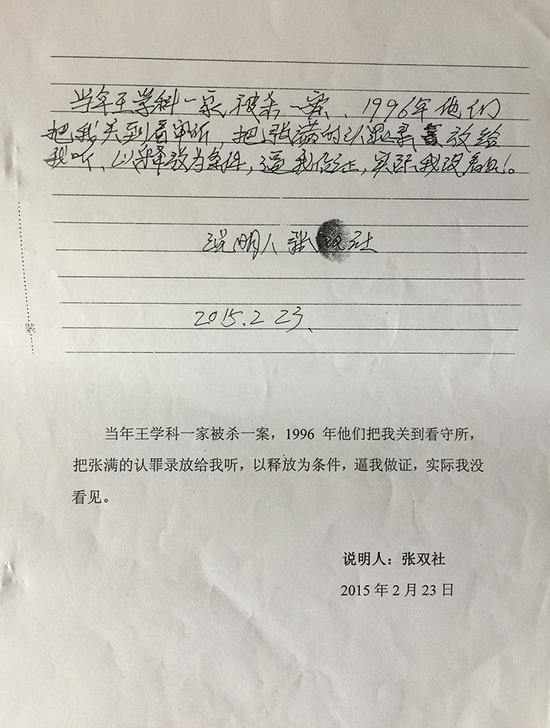 当年王学科一家被杀一案、1996年他们
把我关到看守所 把张满的认罪录 放给
我听、以释放为条件,逼我作证,实际我没看见。
说明人 张双社
2015.2 23、
装
当年王学科一家被杀一案，1996 年他们把我关到看守所，
把张满的认罪录放给我听，以释放为条件，逼我做证，实际我没
看见。
说明人：张双社
2015 年 2 月 23 日